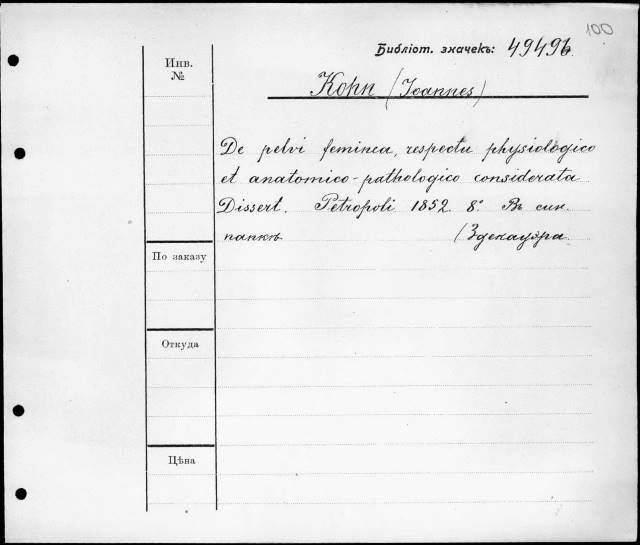 100
Библіот. значекъ: 49496.
Инв.
№
Корп (Joannes)
De pelvi feminea, respectu physiologico
et anatomico-pathologico considerata
Dissert. Petropoli 1852. 8°. Въ син.
папкѣ (Здекауэра.
По заказу
Откуда
Цѣна